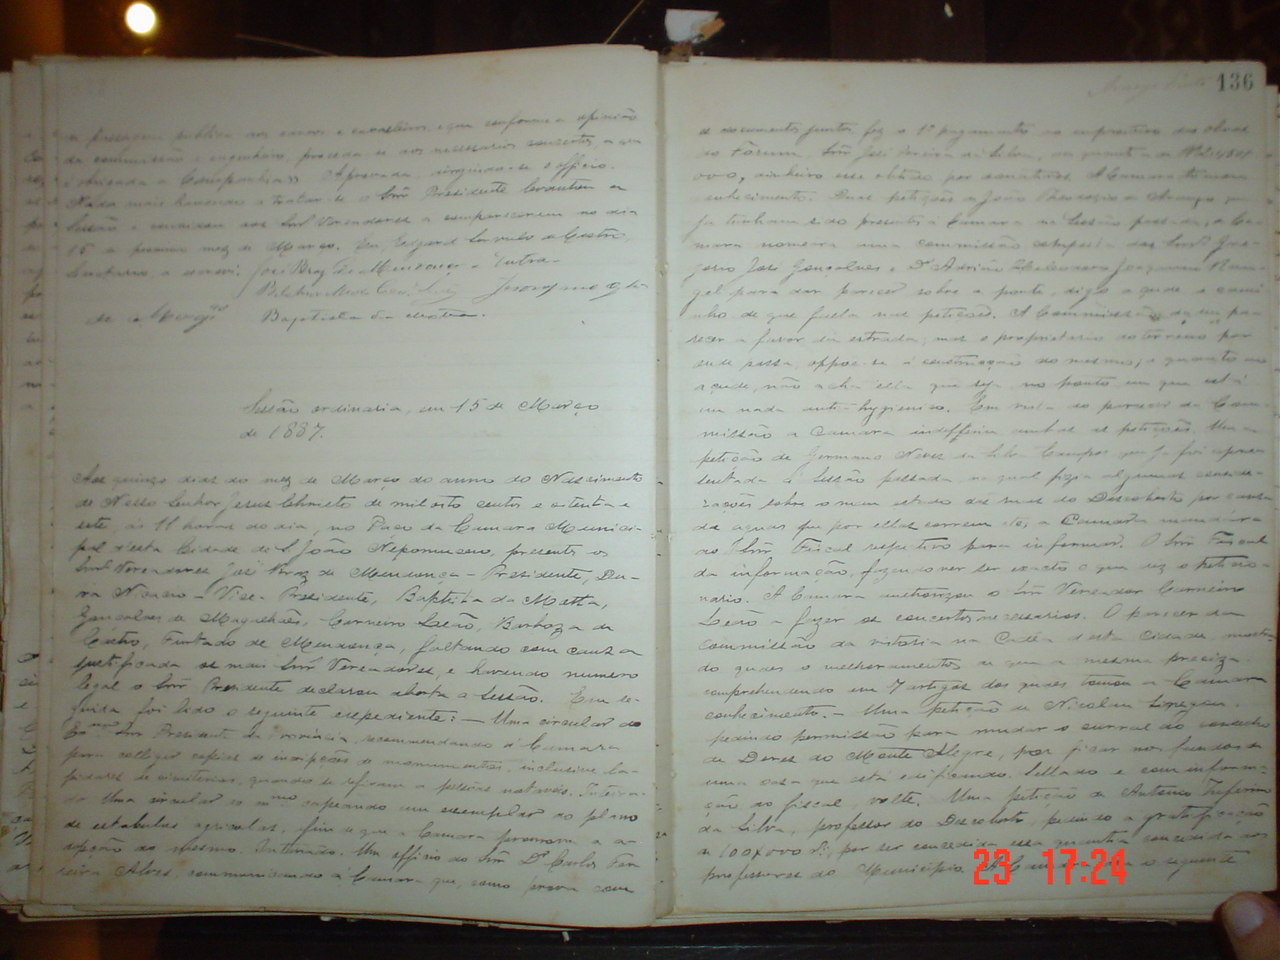 a passagem publica aos carros e cavalleiros, e que conforme a opinião
da commissão e engenheiro, proceda-se aos necessarios concertos a que
é obrigada a Companhia» Aprovada, dirigindo-se officio.
Nada mais havendo a tratar-se o Snr Presidente levantou a
Sessão e convidou aos Snrs Vereadores a comparecerem no dia
15 do proximo mez de Março. Eu, Edgard de Castro,
Secretario, a escrevi. José Braz de Mendonça Dutra
Jeronymo
Baptista da Motta
Sessão ordinaria, em 15 de Março
de 1887.
Aos quinze dias do mez de Março do anno do Nascimento
de Nosso Senhor Jesus Christo de mil oito centos e oitenta e
sete, ás 11 horas do dia, no Paço da Camara Munici-
pal d'esta Cidade de S. João Nepomuceno, presentes os
Snrs Vereadores José Braz de Mendonça - Presidente, Du-
- Vice-Presidente, Baptista da Motta,
Gonçalves de Magalhães, Carneiro Leão, Barboza de
Castro, Furtado de Mendonça, faltando com causa
justificada os mais Snrs Vereadores, e havendo numero
legal o Snr Presidente declarou aberta a Sessão. Em se-
guida foi lido o seguinte expediente: - Uma circular do
Exmo Snr Presidente da Provincia, recommendando á Camara
para colligir copias de inscripções de monumentos, inclusive la-
pidares de cemiterios, quando se refiram a pessoas notaveis. Inteira-
da. Uma circular do mmo capeando um exemplar do plano
de estabulos agricolas, afim de que a Camara promova a a-
dopção do mesmo. Inteirada. Um officio do Snr Dr Carlos Fer-
reira Alves, communicando á Camara que, como prova com
136
os documentos juntos fez o 1º pagamento ao empreiteiro das obras
do Forum, Snr José Pereira da Silva, na quantia de
000, dinheiro esse obtido por donativos. A Camara tomou
conhecimento. Duas petições de João Theodozio de Araujo que
já tinham sido presentes á Camara na Sessão passada, a Ca-
mara nomeara uma commissão composta dos Snrs
José Gonçalves e Dr Adrião Joaquim Ran-
gel para dar parecer sobre a ponte, digo açude e cami-
nho de que falla nas petições. A Commissão dá seu pa-
recer a favor da estrada, mas o proprietario do terreno por
onde passa, oppoe-se á construcção do mesmo, e quanto ao
açude, não acha ella que seja no ponto em que está
em nada anti-hygienico. Em vista do parecer da Com-
missão a Camara indeffere ambas as petições. Uma
petição de Germano Neves da Silva Campos que já foi apre-
sentada á Sessão passada, na qual fazia algumas conside-
rações sobre o mau estado das ruas do Descoberto por causa
das aguas que por ellas correm etc, a Camara mandára
ao Snr Fiscal respectivo para informar. O Snr Fiscal
da informação, fazendo ver ser exacto o que diz o peticio-
nario. A Camara authorizou o Snr Vereador Carneiro
Leão a fazer os concertos necessarios. O parecer da
commissão da vistoria na Cadêa d'esta Cidade, mostran-
do quaes o melhoramentos de que a mesma preciza
comprehendendo em 7 artigos dos quaes tomou a Camara
conhecimento. - Uma petição de Nicolau
pedindo permissão para mudar o curral do conselho
de Dores do Monte Alegre, por ficar nos fundos de
uma casa que está edificando. Sellado e com informa-
ção do fiscal, volte. Uma petição de Antonio Zeferino
da Silva, professor do Descoberto, pedindo a gratificação
de 100$000 rs, por ser concedida essa quantia concedida aos
professores do Municipio. A Camara o seguinte
23 17:24